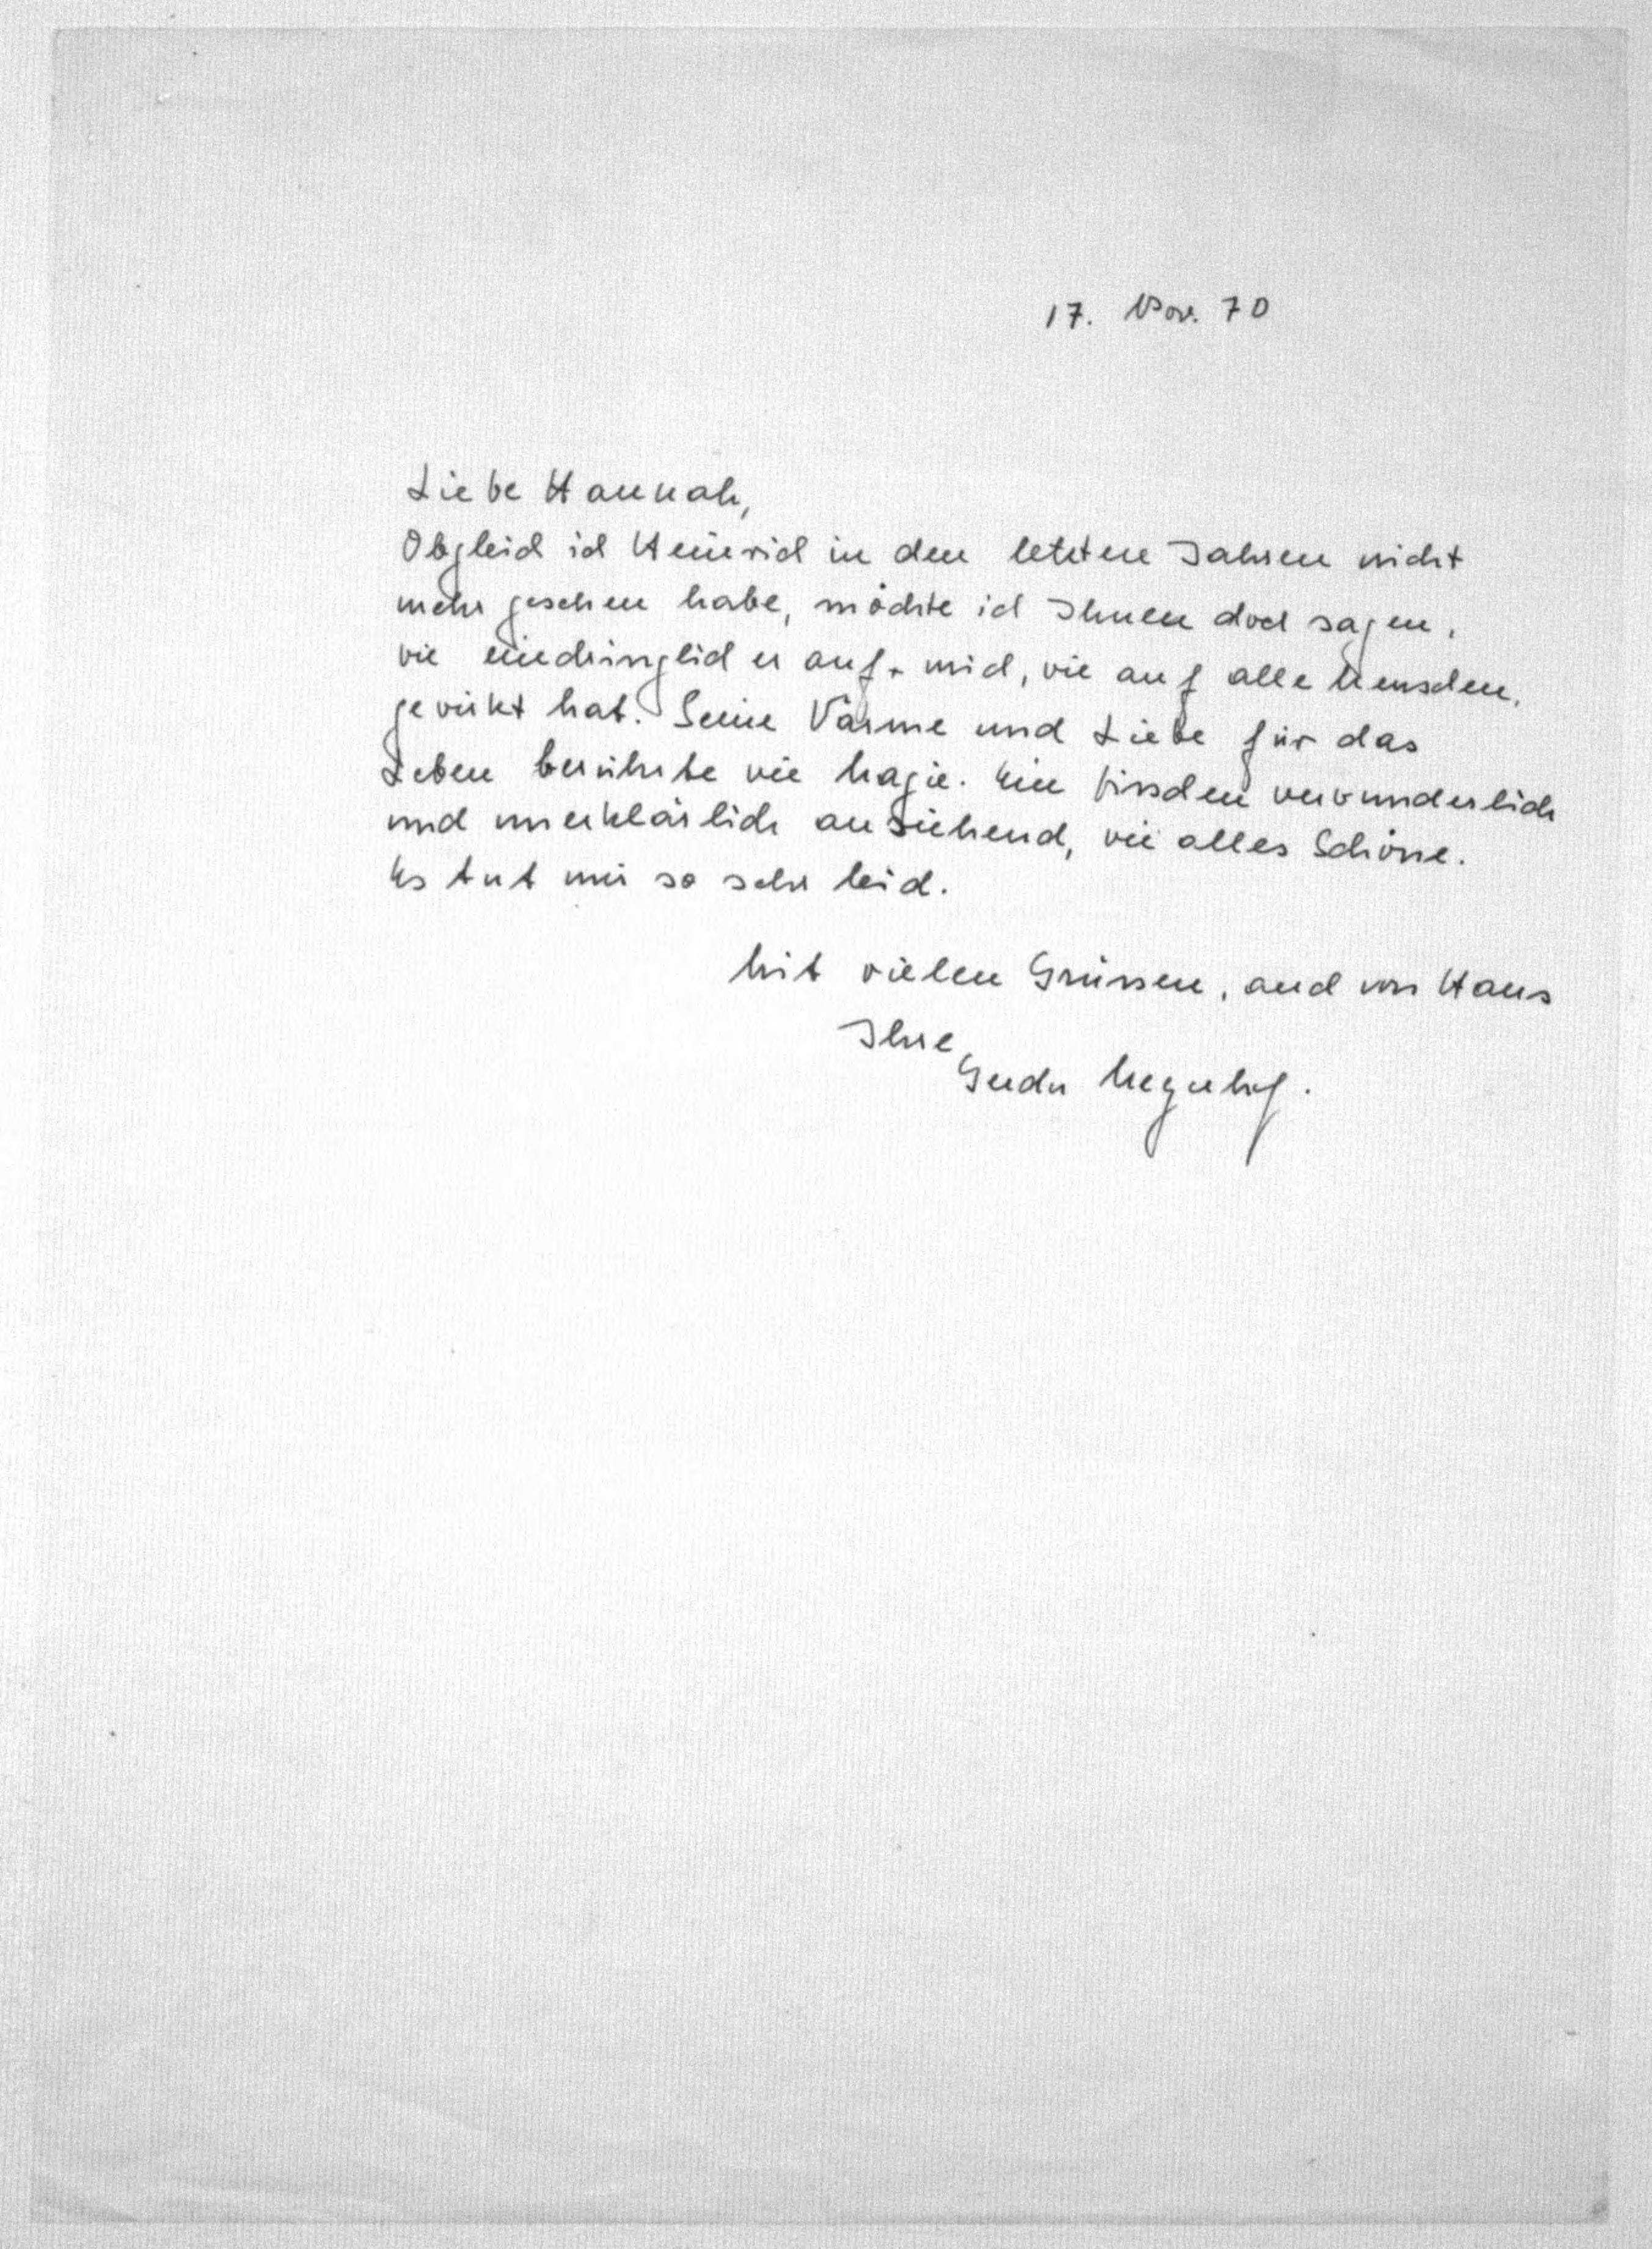 17. Nov. 70
Liebe Hannah,
Obgleich ich Heinrich in den letzten Jahren nicht
mehr gesehen habe, möchte ich Ihnen doch sagen,
wie eindringlich er auf mich, wie auf alle Menschen,
gewirkt hat. Seine Wärme und Liebe für das
Leben berührte wie Magie. Ein bisschen verwunderlich
und unerklärlich anziehend, wie alles Schöne.
Es tut mir so sehr leid.
Mit vielen Grüssen, auch von Hans
Ihre